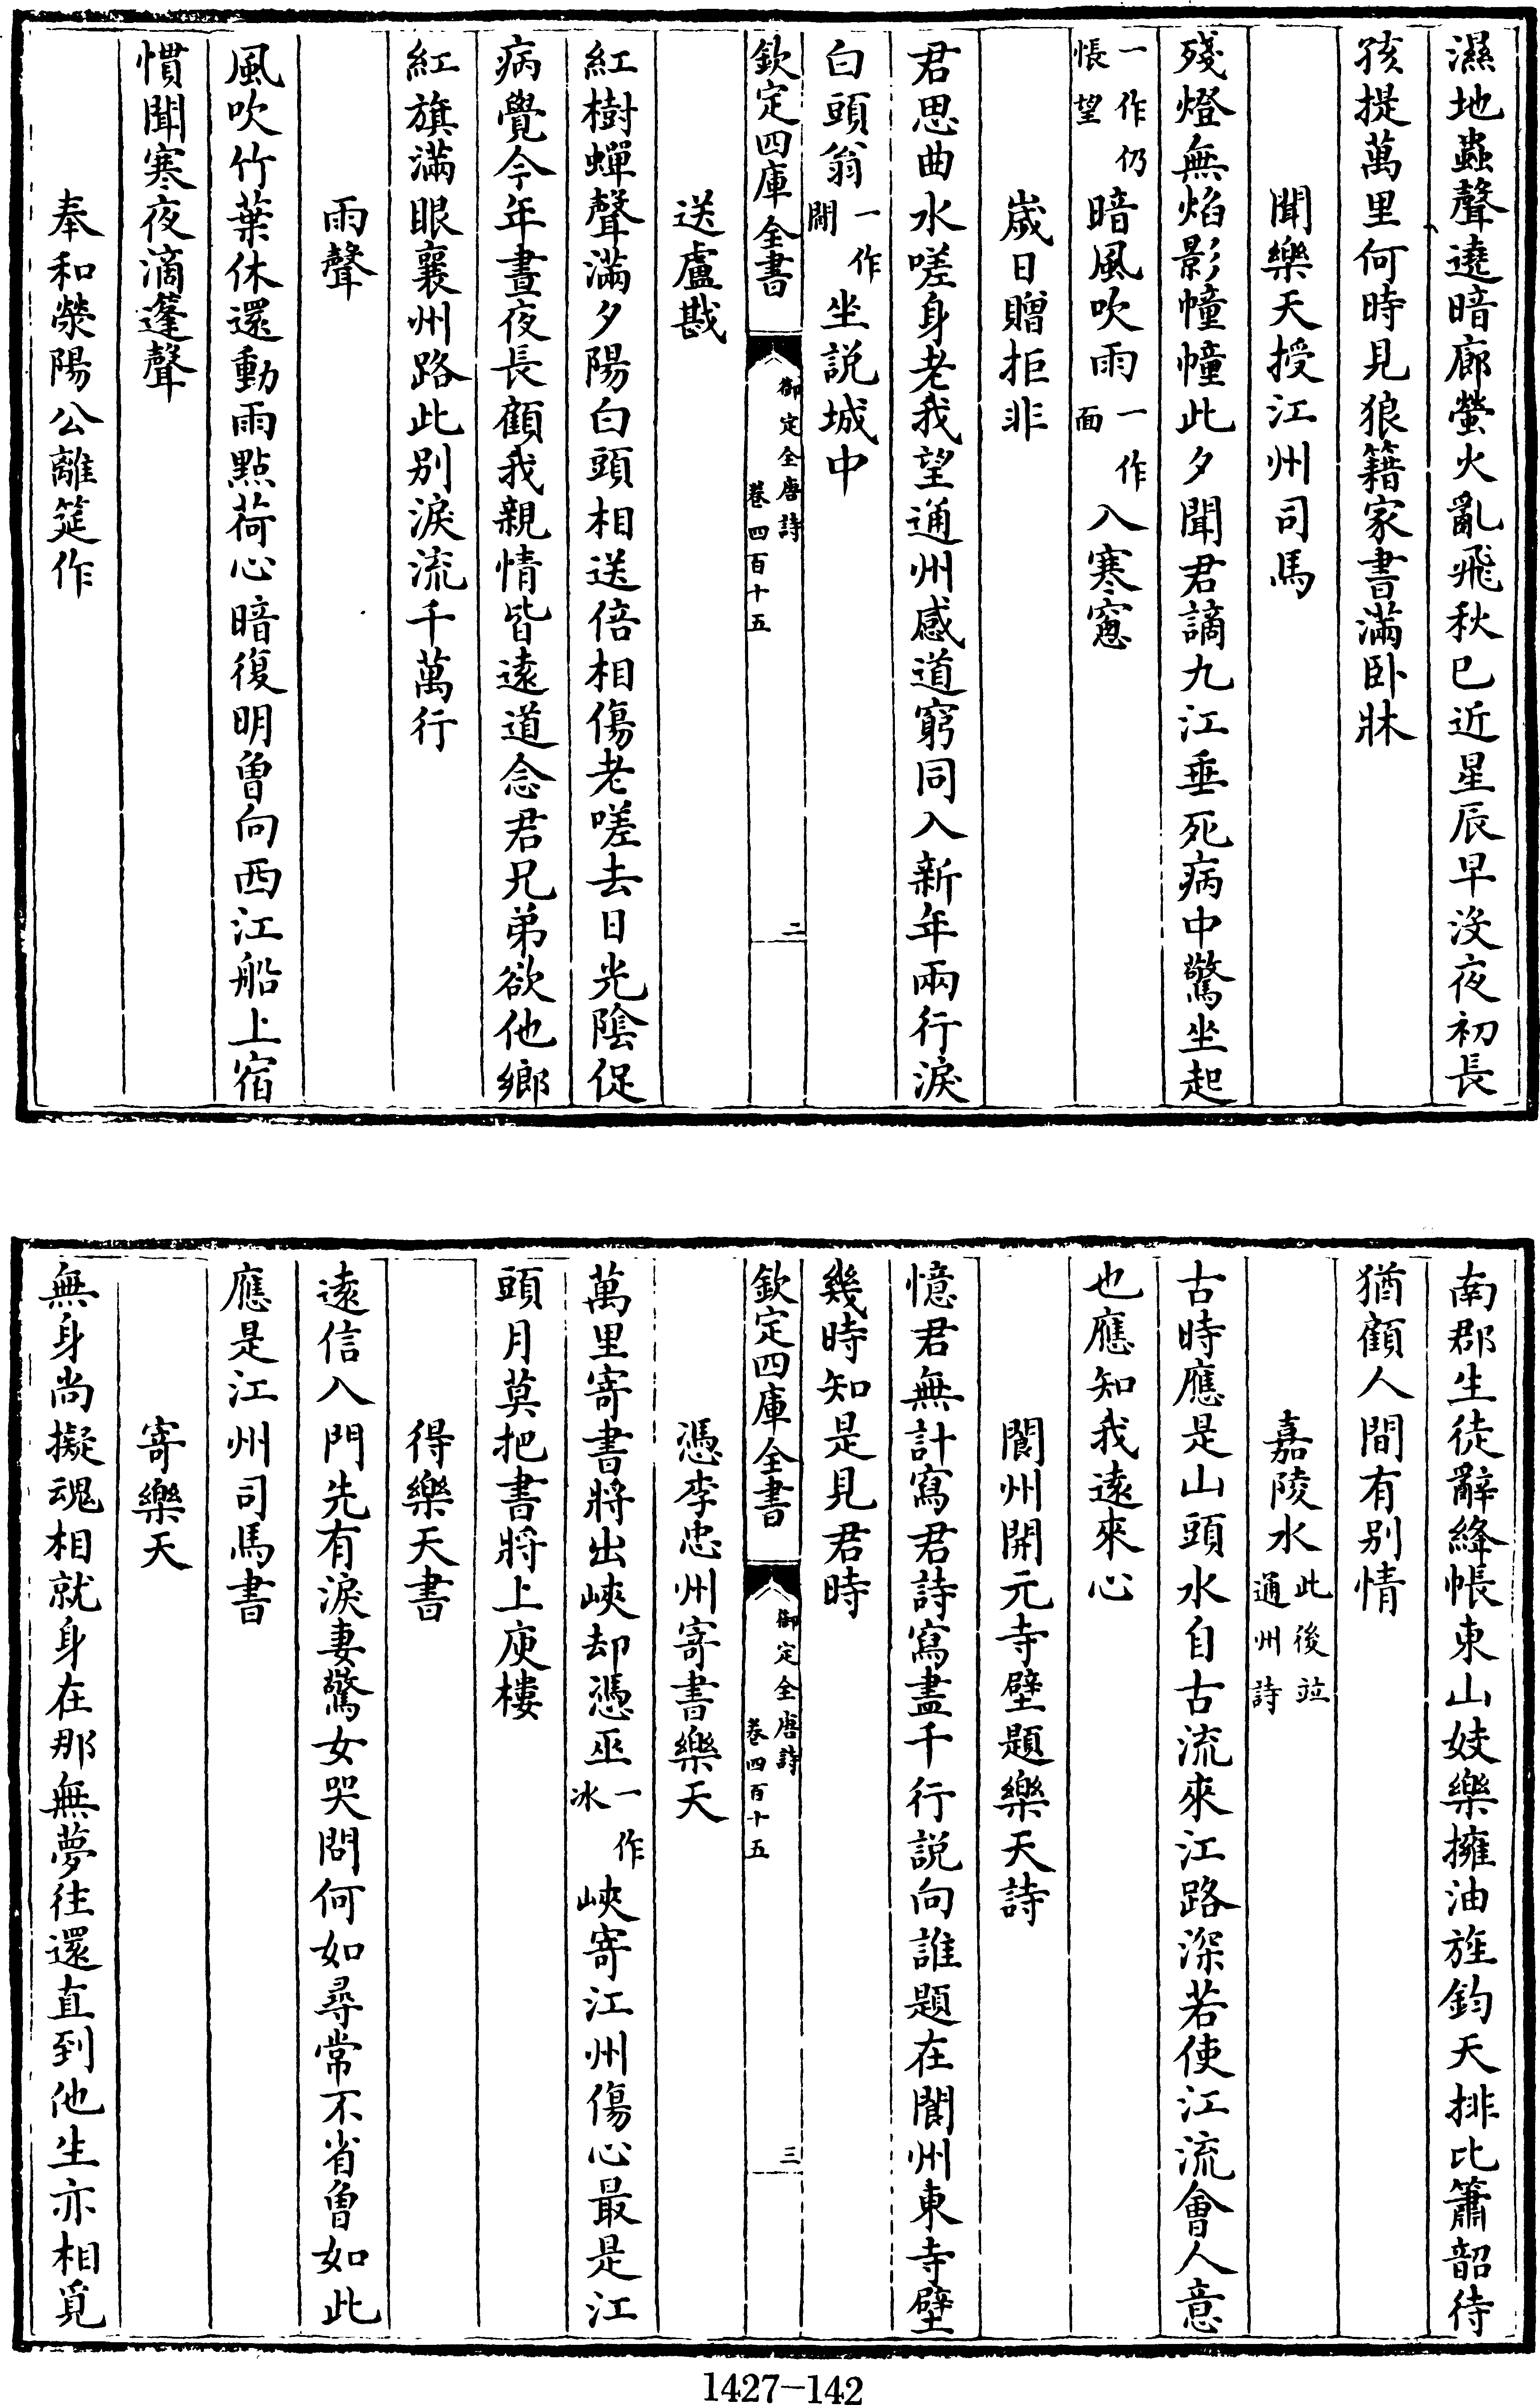 濕地蟲聲遶暗廊螢火亂飛秋已近星辰早没夜初長
孩提萬里何時見狼籍家書滿卧牀
聞樂天授江州司馬
殘燈無焰影幢幢此夕聞君謫九江垂死病中驚坐起
一作仍悵望暗風吹雨一作面入寒窻
歲日贈拒非
君思曲水嗟身老我望通州感道窮同入新年兩行淚
白頭翁一作閒坐説城中
欽定四庫全書
御定全唐詩
卷四百十五
二
送盧戡
紅樹蟬聲滿夕陽白頭相送倍相傷老嗟去日光陰促
病覺今年晝夜長顧我親情皆遠道念君兄弟欲他鄉
紅旗滿眼襄州路此别淚流千萬行
雨聲
風吹竹葉休還動雨點荷心暗復明曾向西江船上宿
慣聞寒夜滴篷聲
奉和滎陽公離筵作
南郡生徒辭絳帳東山妓樂擁油旌鈞天排比簫韶待
猶顧人間有别情
嘉陵水此後竝通州詩
古時應是山頭水自古流來江路深若使江流會人意
也應知我遠來心
閬州開元寺壁題樂天詩
憶君無計寫君詩寫盡千行説向誰題在閬州東寺壁
幾時知是見君時
欽定四庫全書
御定全唐詩
卷四百十五
三
憑李忠州寄書樂天
萬里寄書將出峽却憑巫一作冰峽寄江州傷心最是江
頭月莫把書將上庾樓
得樂天書
遠信入門先有淚妻驚女哭問何如尋常不省曾如此
應是江州司馬書
寄樂天
無身尚擬魂相就身在那無夢往還直到他生亦相覓
1427-142